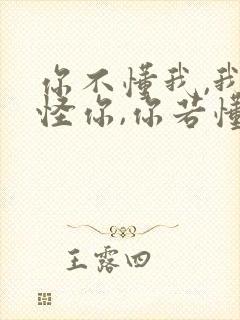 你不懂我,我
怪你,你若懂
王露四